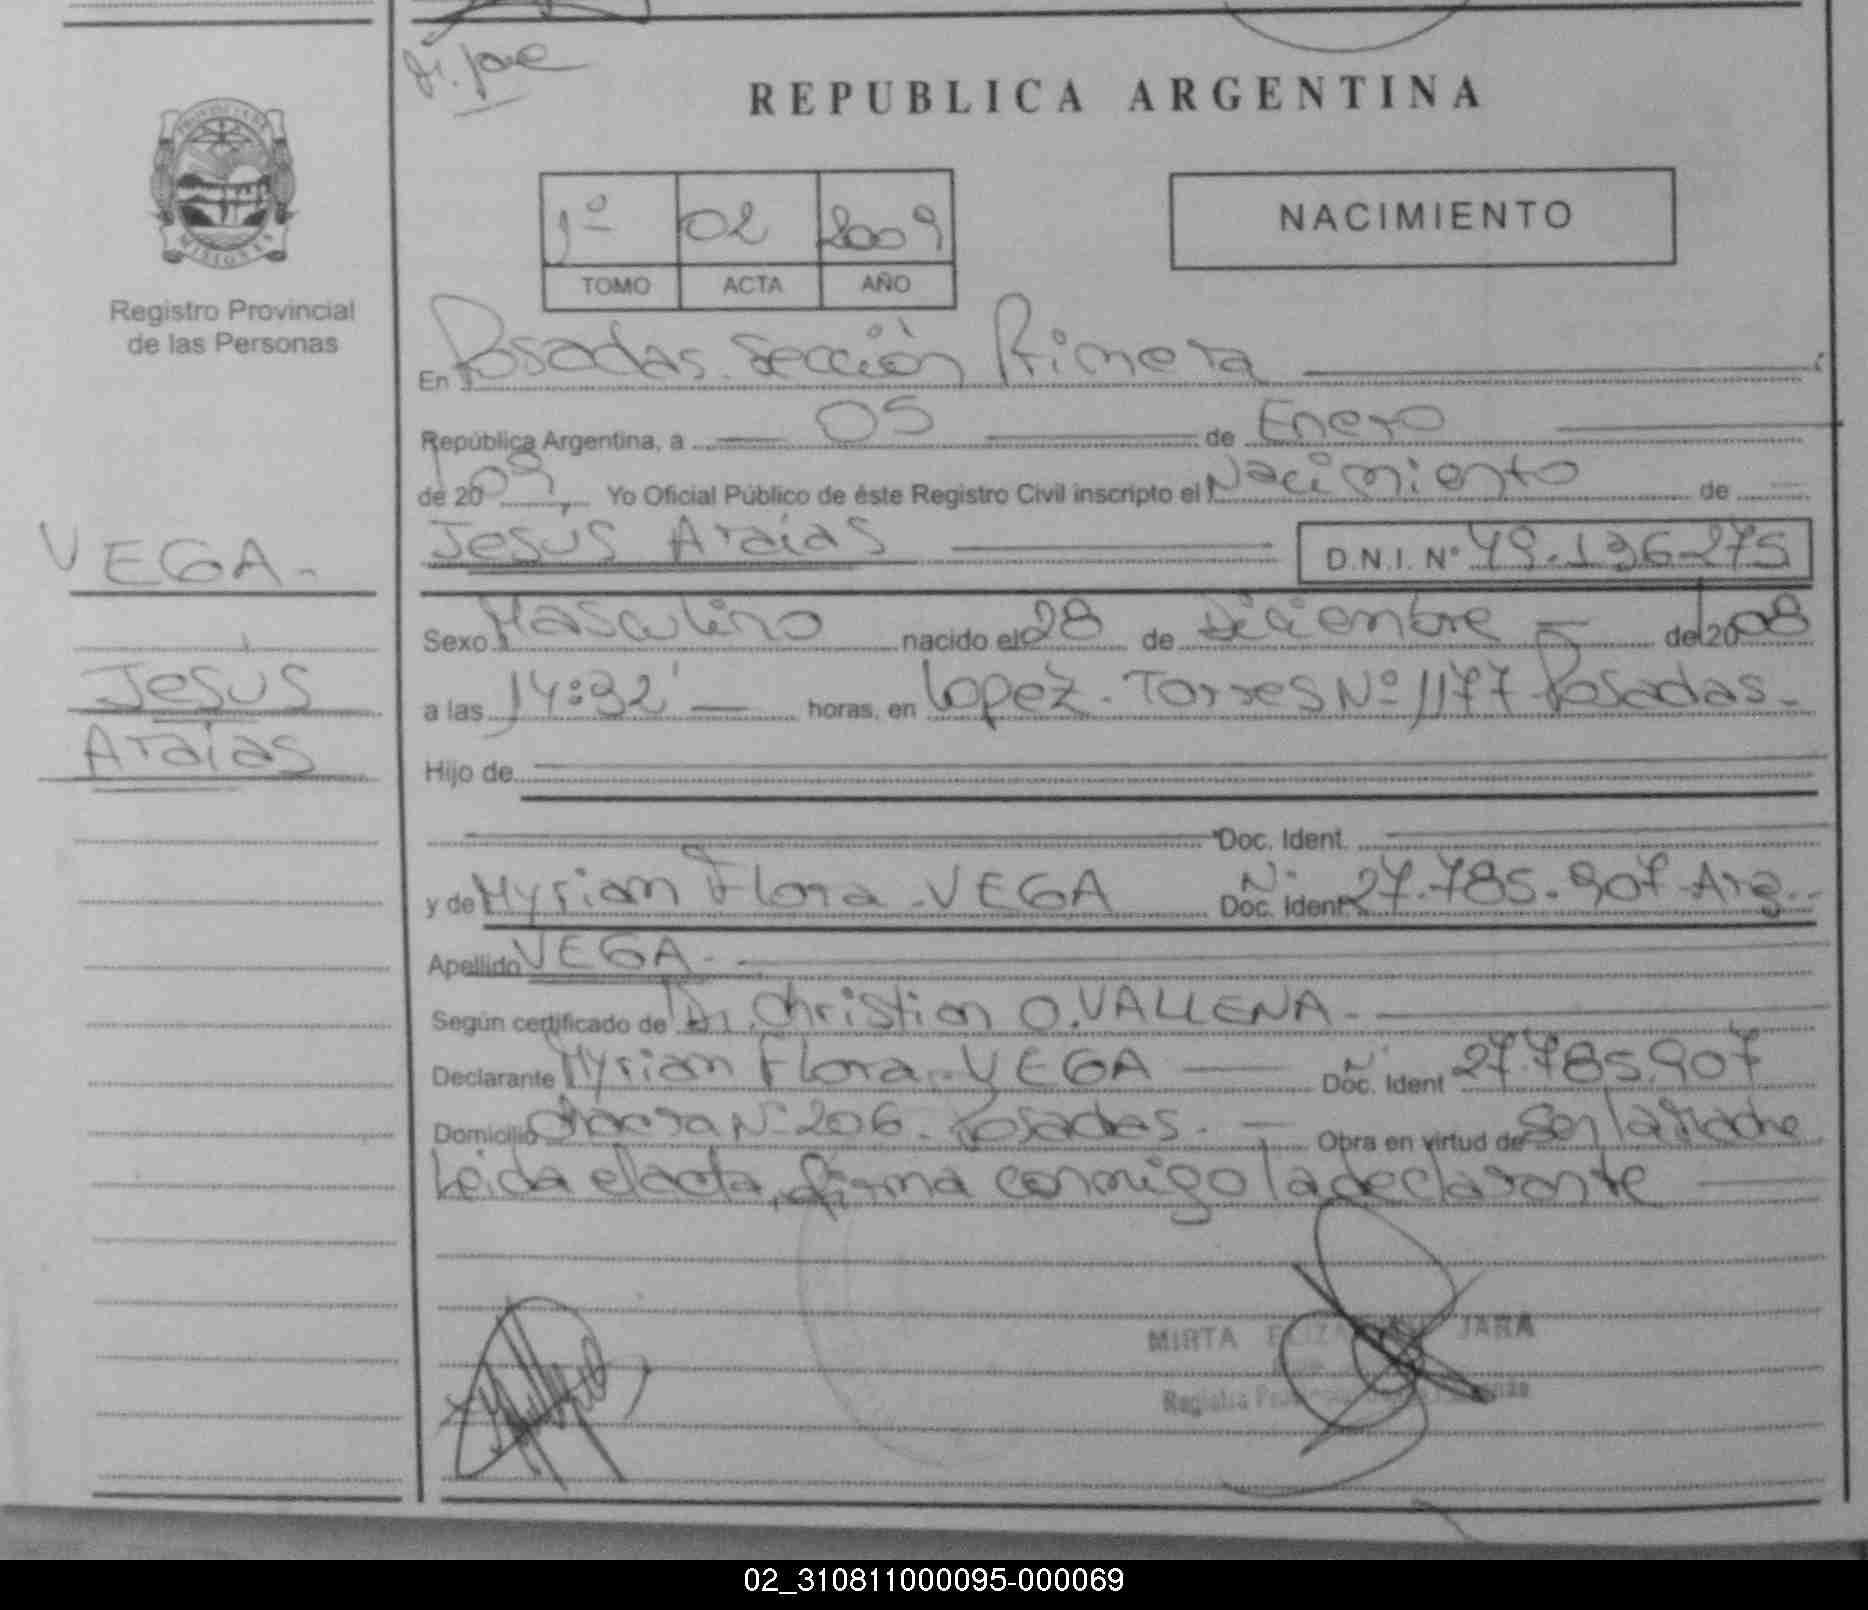 REPUBLICA ARGENTINA
1º 02 2009
TOMO ACTA AÑO
NACIMIENTO
PROVINCIA DE
MISIONES
Registro Provincial
de las Personas
En Posadas. Sección Primera
República Argentina, a 05 de Enero
de 2009, Yo Oficial Público de éste Registro Civil inscripto el Nacimiento de
Jesús Araías D.N.I. Nº 49.196.275
Sexo Masculino nacido el 28 de Diciembre de 2008
a las 14:32' horas, en Lopez. Torres Nº 1177 Posadas.
Hijo de
Doc. Ident.
y de Myrian Flora VEGA Nº Doc. Ident 27.785.907 Arg.
Apellido VEGA.
Según certificado de Dr. Christian O. VALLENA.
Declarante Myrian Flora. VEGA Nº Doc. Ident 27.785.907
Domicilio Chacra Nº 206. Posadas. Obra en virtud de Ser la Madre
Leida el acta, firma conmigo la declarante
VEGA.
Jesús
Araías
MIRTA JARA
Registro
02_310811000095-000069